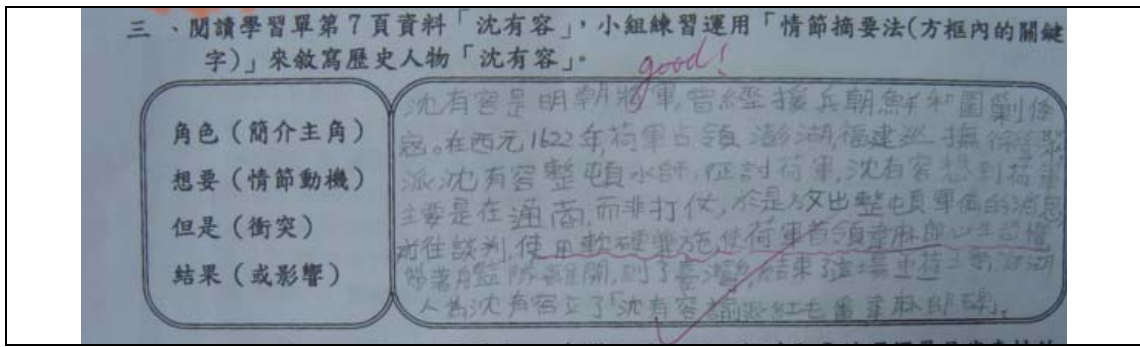 三、閱讀學習單第7頁資料「沈有容」,小組練習運用「情節摘要法(方框內的關鍵
字)」來敘寫歷史人物「沈有容」。
good!
角色(簡介主角)
想要(情節動機)
但是(衝突)
結果(或影響)
沈有容是明朝將軍,曾經援兵朝鮮和圍剿倭
寇。在西元1622年,荷軍占領澎湖,福建巡撫
派沈有容整頓水師,征討荷軍,沈有容想到荷軍
主要是在通商,而非打仗,於是放出整頓軍備的消息
前往談判,使用軟硬兼施,使荷軍首領韋麻郎心生恐懼
帶著離開,到了臺灣,結束了這場
人為沈有容立了「沈有容諭退紅毛番韋麻郎碑」。